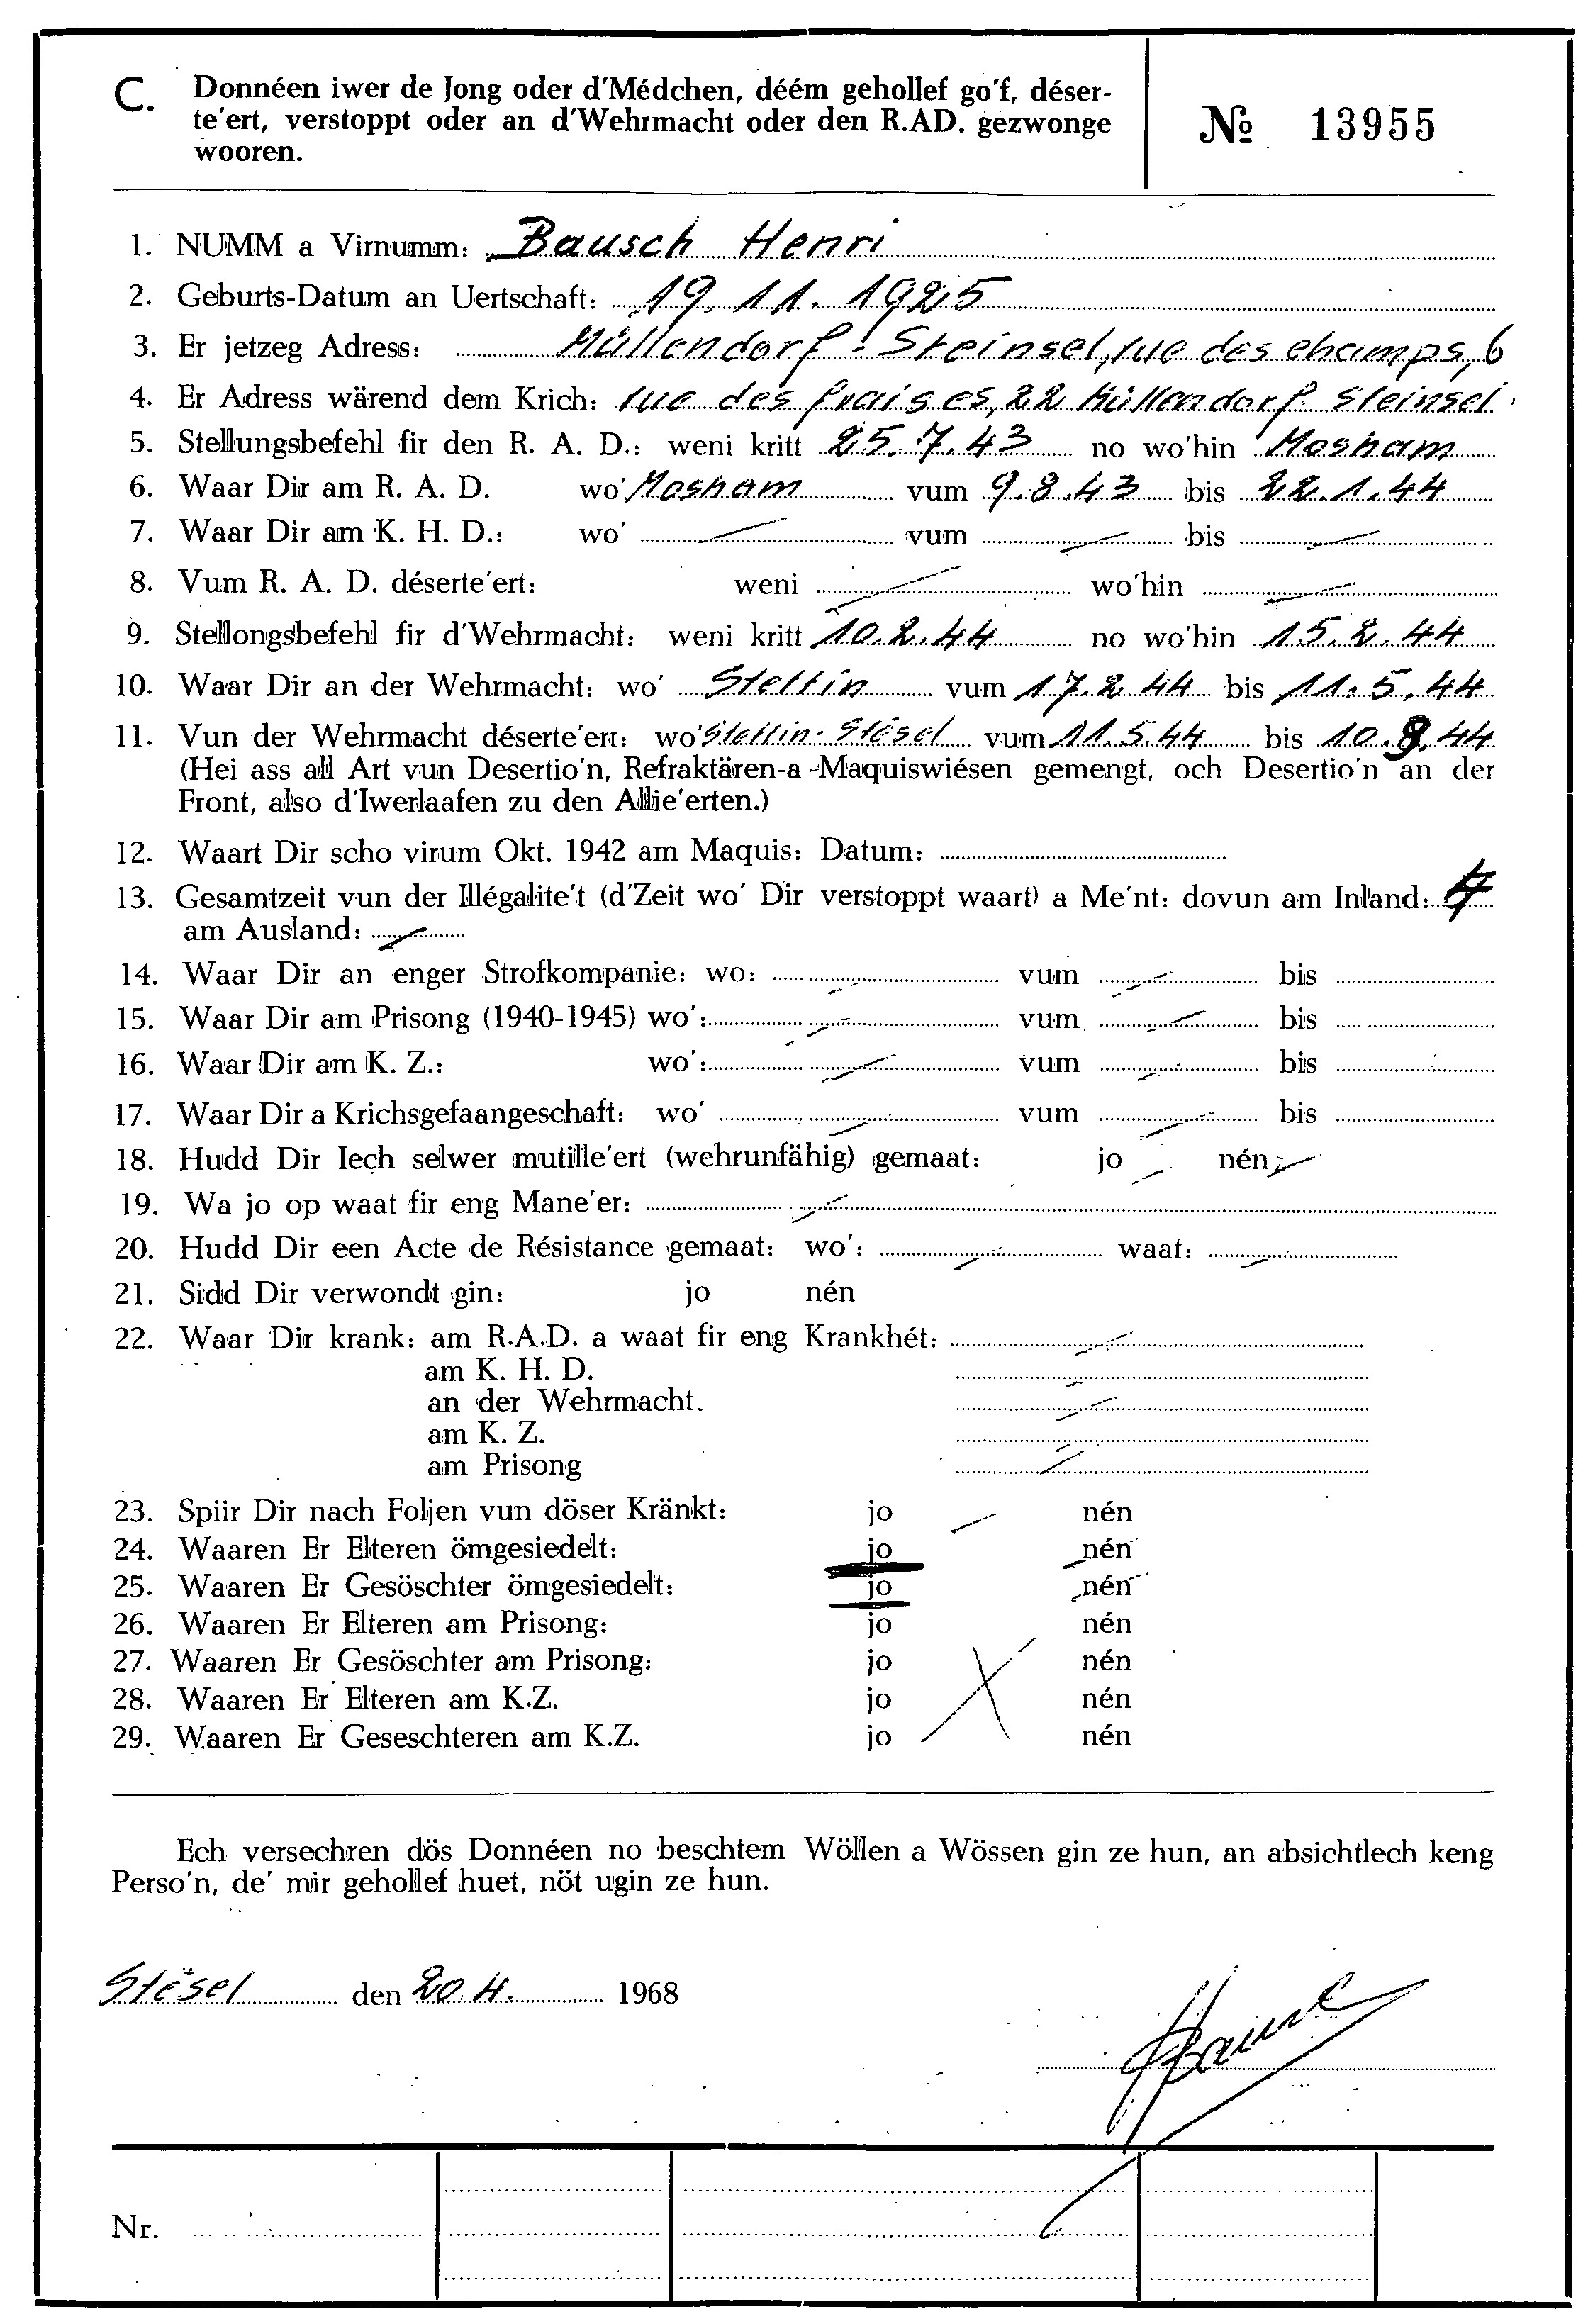 C. Donnéen iwer de Jong oder d'Médchen, déém gehollef go'f, déser-
te'ert, verstoppt oder an d'Wehrmacht oder den R.AD. gezwonge
wooren.
№ 13955
1. NUMM a Virnumm: Bausch Henri
2. Geburts-Datum an Uertschaft: 19.11.1925
3. Er jetzeg Adress: Müllendorf-Steinsel, rue des champs, 6
4. Er Adress wärend dem Krich: rue des fraises, 22 Müllendorf Steinsel
5. Stellungsbefehl fir den R. A. D.: weni kritt 25.7.43 no wo'hin Mosham
6. Waar Dir am R. A. D. wo' Mosham vum 9.8.43 bis 22.1.44
7. Waar Dir am K. H. D.: wo' vum bis
8. Vum R. A. D. déserte'ert: weni wo'hin
9. Stellongsbefehl fir d'Wehrmacht: weni kritt 10.2.44 no wo'hin 15.2.44
10. Waar Dir an der Wehrmacht: wo' Stettin vum 17.2.44 bis 11.5.44
11. Vun der Wehrmacht déserte'ert: wo' Stettin-Stésel vum 11.5.44 bis 10.9.44
(Hei ass all Art vun Desertio'n, Refraktären-a-Maquiswiésen gemengt, och Desertio'n an der
Front, also d'Iwerlaafen zu den Allie'erten.)
12. Waart Dir scho virum Okt. 1942 am Maquis: Datum:
13. Gesamtzeit vun der Illégalite't (d'Zeit wo' Dir verstoppt waart) a Me'nt: dovun am Inland: 4
am Ausland:
14. Waar Dir an enger Strofkompanie: wo: vum bis
15. Waar Dir am Prisong (1940-1945) wo': vum bis
16. Waar Dir am K. Z.: wo': vum bis
17. Waar Dir a Krichsgefaangeschaft: wo' vum bis
18. Hudd Dir Iech selwer mutille'ert (wehrunfähig) gemaat: jo nén
19. Wa jo op waat fir eng Mane'er:
20. Hudd Dir een Acte de Résistance gemaat: wo': waat:
21. Sidd Dir verwondt gin: jo nén
22. Waar Dir krank: am R.A.D. a waat fir eng Krankhét:
am K. H. D.
an der Wehrmacht.
am K. Z.
am Prisong
23. Spiir Dir nach Foljen vun döser Kränkt: jo nén
24. Waaren Er Elteren ömgesiedelt: jo nén
25. Waaren Er Gesöschter ömgesiedelt: jo nén
26. Waaren Er Elteren am Prisong: jo nén
27. Waaren Er Gesöschter am Prisong: jo nén
28. Waaren Er Elteren am K.Z. jo nén
29. Waaren Er Geseschteren am K.Z. jo nén
Ech versechren dös Donnéen no beschtem Wöllen a Wössen gin ze hun, an absichtlech keng
Perso'n, de' mir gehollef huet, nöt ugin ze hun.
Stésel den 20.4. 1968
Nr.